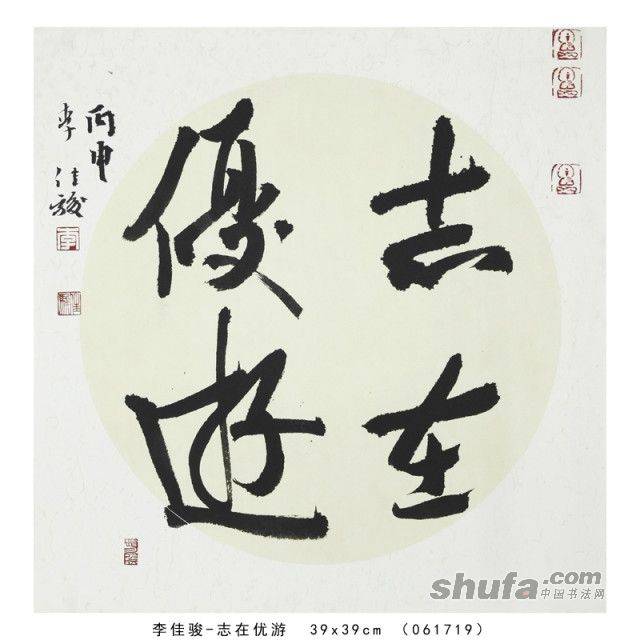 志在
優遊
丙申
李佳骏
shufa.com
中国书法网
李佳骏-志在优游 39x39cm (061719)